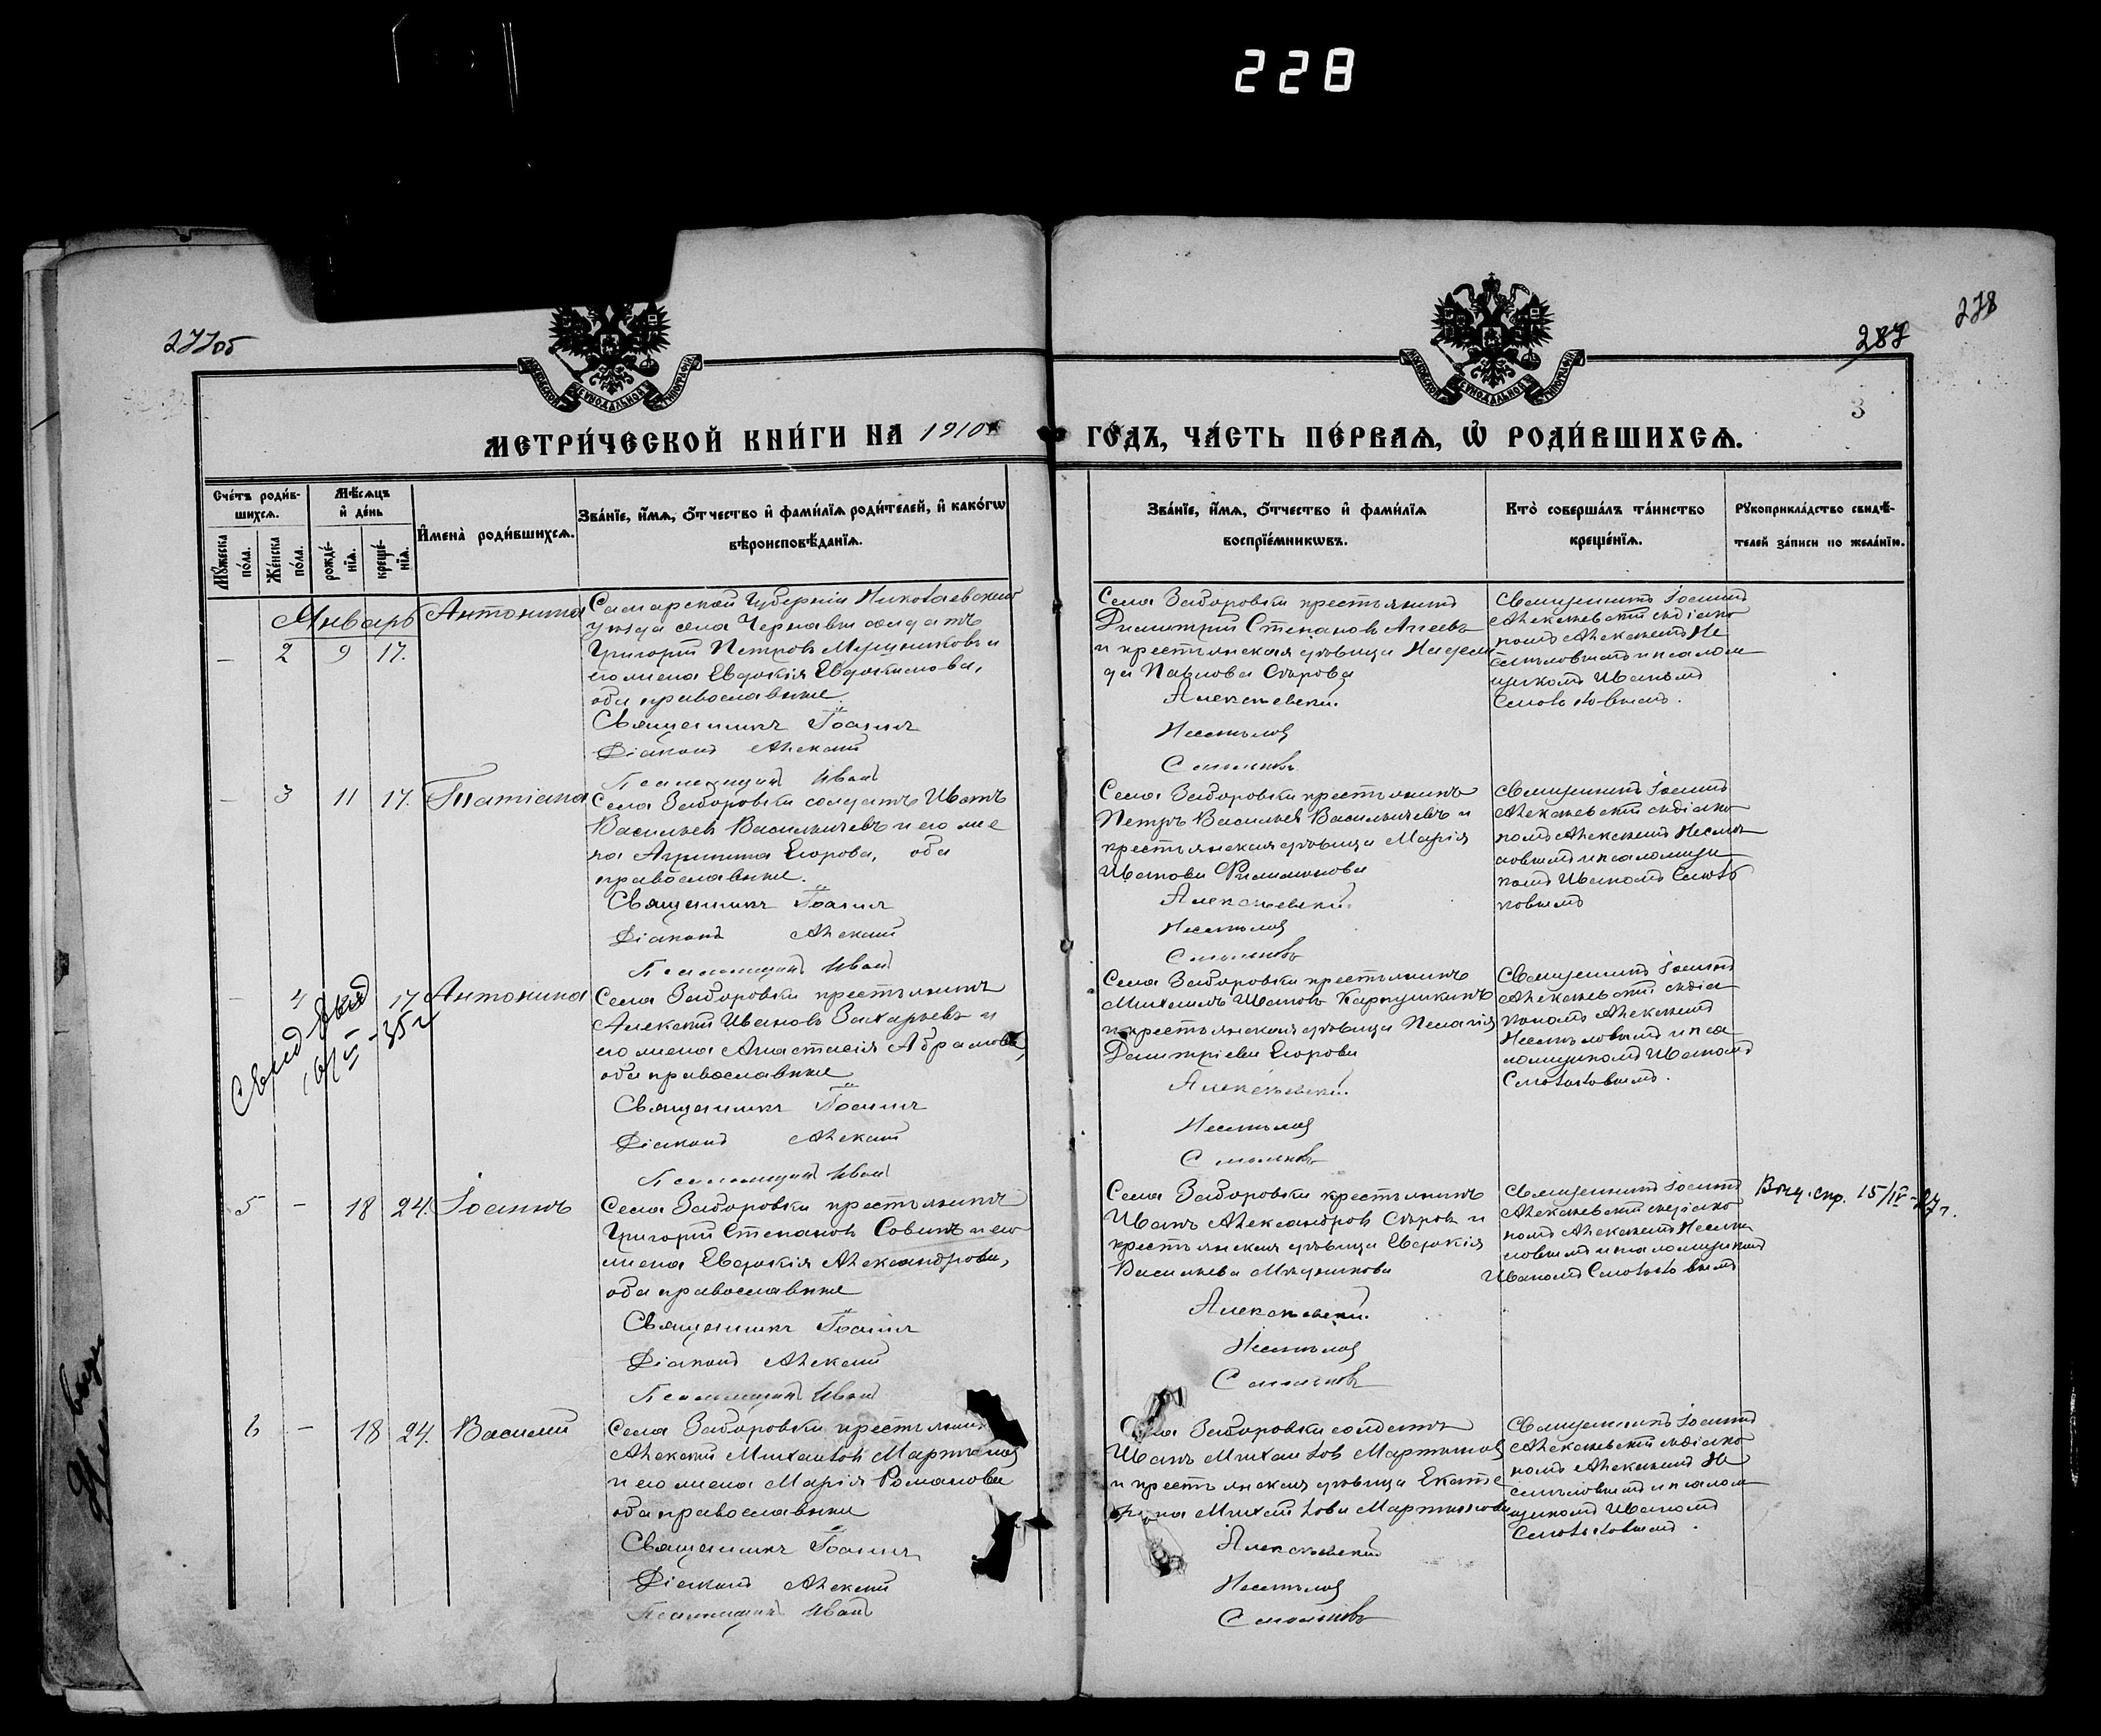 228
277об
287
278
3
МОСКОВСКОЙ СѴНОДАЛЬНОЙ ТИПОГРАФІИ
МОСКОВСКОЙ СѴНОДАЛЬНОЙ ТИПОГРАФІИ
МЕТРИ́ЧЕСКОЙ КНИ́ГИ НА 1910 ГО́ДЪ, ЧА́СТЬ ПЕ́РВАѦ, Ѡ҆ РОДИ́ВШИХСѦ.
Сче́тъ роди́в-
шихсѧ.
Мꙋ́жеска по́ла.
Же́нска по́ла.
Мѣ́сѧцъ
и҆ де́нь
рожде́-нїѧ.
креще́-нїѧ.
И҆мена̀ роди́вшихсѧ.
Зва́нїе, и҆́мѧ, ѻ҆́тчество и҆ фами́лїѧ роди́телей, и҆ како́гѡ
вѣроисповѣ́данїѧ.
Зва́нїе, и҆́мѧ, ѻ҆́тчество и҆ фами́лїѧ
воспрїе́мникѡвъ.
Кто̀ соверша́лъ та́инство
креще́нїѧ.
Рꙋкоприкла́дство свидѣ́-
телей за́писи по жела́нїю.
Январь
– 2 9 17.
Антонина
Самарской Губерніи Николаевскаго
уѣзда села Чернавы солдатъ
Григорій Петровъ Мѣдниковъ и
его жена Евдокія Евдокимова,
оба православные
Священникъ Іоаннъ
Діаконъ Алексій
Псаломщикъ Иванъ
Села Заборовки крестьянинъ
Димитрій Степановъ Агеевъ
и крестьянская дѣвица Надеж
да Павлова Сѣрова
Алексѣевскій.
Несмѣловъ
Смольковъ
Священникъ Іоаннъ
Алексѣевскій съ діако
номъ Алексіемъ Не
смѣловымъ и псалом
щикомъ Иваномъ
Смольковымъ.
– 3 11 17.
Татіана
Села Заборовки солдатъ Иванъ
Васильевъ Васильичевъ и его же
на Агриппина Егорова, оба
православные.
Священникъ Іоаннъ
Діаконъ Алексій
Псаломщикъ Иванъ
Села Заборовки крестьянинъ
Петръ Васильевъ Васильичевъ и
крестьянская дѣвица Марія
Иванова Филимонова
Алексѣевскій.
Несмѣловъ
Смольковъ
Священникъ Іоаннъ
Алексѣевскій съ діако
номъ Алексіемъ Несмѣ
ловымъ и псаломщи
комъ Иваномъ Смоль
ковымъ
– 4 17
Антонина
Села Заборовки крестьянинъ
Алексій Ивановъ Захарьевъ и
его жена Анастасія Абрамова,
оба православные
Священникъ Іоаннъ
Діаконъ Алексій
Псаломщикъ Иванъ
Села Заборовки крестьянинъ
Михаилъ Ивановъ Карпушкинъ
и крестьянская дѣвица Пелагія
Димитріева Егорова
Алексѣевскій.
Несмѣловъ
Смольковъ
Священникъ Іоаннъ
Алексѣевскій съ діа
кономъ Алексіемъ
Несмѣловымъ и пса
ломщикомъ Иваномъ
Смольковымъ.
5 – 18 24.
Іоаннъ
Села Заборовки крестьянинъ
Григорій Степановъ Совинъ и его
жена Евдокія Александрова,
оба православные
Священникъ Іоаннъ
Діаконъ Алексій
Псаломщикъ Иванъ
Села Заборовки крестьянинъ
Иванъ Александровъ Сѣровъ и
крестьянская дѣвица Евдокія
Васильева Мѣдникова
Алексѣевскій.
Несмѣловъ
Смольковъ
Священникъ Іоаннъ
Алексѣевскій съ діако
номъ Алексіемъ Несмѣ
ловымъ и псаломщикомъ
Иваномъ Смольковымъ
Выд. спр. 15/IV-27г.
6 – 18 24.
Василій
Села Заборовки крестьянинъ
Алексій Михайловъ Мартыновъ
и его жена Марія Романова
оба православные
Священникъ Іоаннъ
Діаконъ Алексій
Псаломщикъ Иванъ
Села Заборовки солдатъ
Иванъ Михайловъ Мартыновъ
и крестьянская дѣвица Екате
рина Михайлова Мартынова
Алексѣевскій
Несмѣловъ
Смольковъ
Священникъ Іоаннъ
Алексѣевскій съ діако
номъ Алексіемъ Не
смѣловымъ и псалом
щикомъ Иваномъ
Смольковымъ.